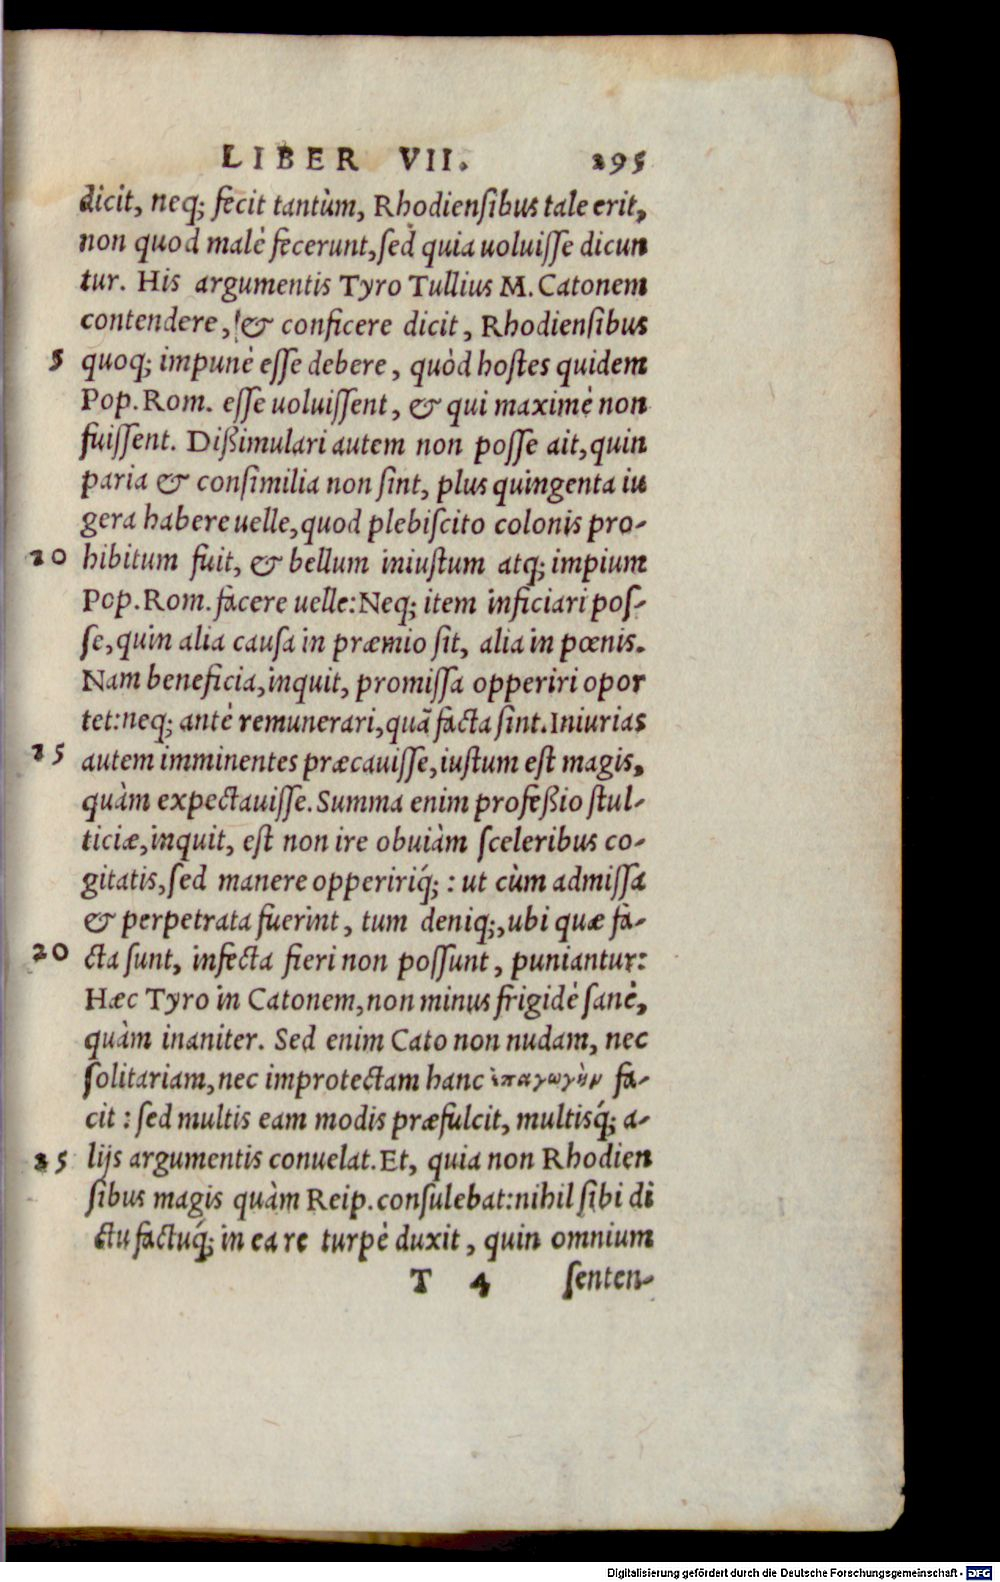 LIBER VII. 295
dicit, neq; fecit tantùm, Rhodiensibus tale erit,
non quod malè fecerunt, sed quia uoluisse dicun
tur. His argumentis Tyro Tullius M. Catonem
contendere, & conficere dicit, Rhodiensibus
5 quoq; impunè esse debere, quòd hostes quidem
Pop. Rom. esse uoluissent, & qui maximè non
fuissent. Dißimulari autem non posse ait, quin
paria & consimilia non sint, plus quingenta iu
gera habere uelle, quod plebiscito colonis pro-
10 hibitum fuit, & bellum iniustum atq; impium
Pop. Rom. facere uelle: Neq; item inficiari pos-
se, quin alia causa in præmio sit, alia in pœnis.
Nam beneficia, inquit, promissa opperiri opor
tet: neq; antè remunerari, quā facta sint. Iniurias
15 autem imminentes præcauisse, iustum est magis,
quàm expectauisse. Summa enim profeßio stul-
ticiæ, inquit, est non ire obuiàm sceleribus co-
gitatis, sed manere oppeririq́; : ut cùm admissa
& perpetrata fuerint, tum deniq;, ubi quæ fa-
20 cta sunt, infecta fieri non possunt, puniantur:
Hæc Tyro in Catonem, non minus frigidè sanè,
quàm inaniter. Sed enim Cato non nudam, nec
solitariam, nec improtectam hanc ἐπαγωγὴν fa-
cit : sed multis eam modis præfulcit, multisq́; a-
25 lijs argumentis conuelat. Et, quia non Rhodien
sibus magis quàm Reip. consulebat: nihil sibi di
ctu factuq́; in ea re turpè duxit, quin omnium
T 4 senten-
Digitalisierung gefördert durch die Deutsche Forschungsgemeinschaft - DFG